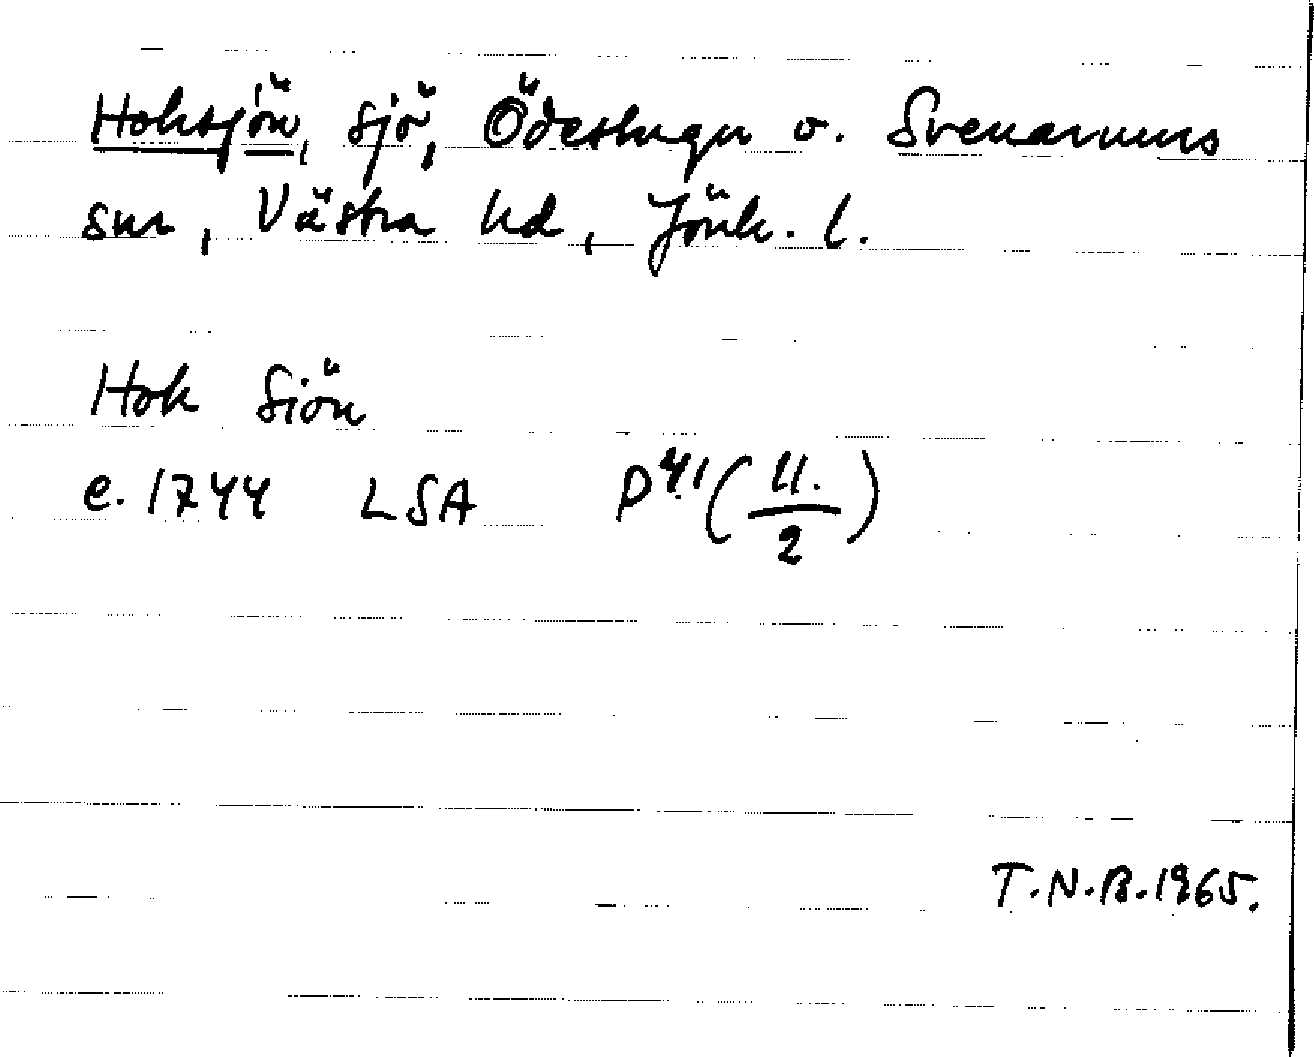 Hoksjön, sjö, Ödestugu o. Svenarums
snr, Västra hd, Jönk. l.
Hok Siön
e. 1744 LSA P 41 (11./2)
T.N.B. 1965.